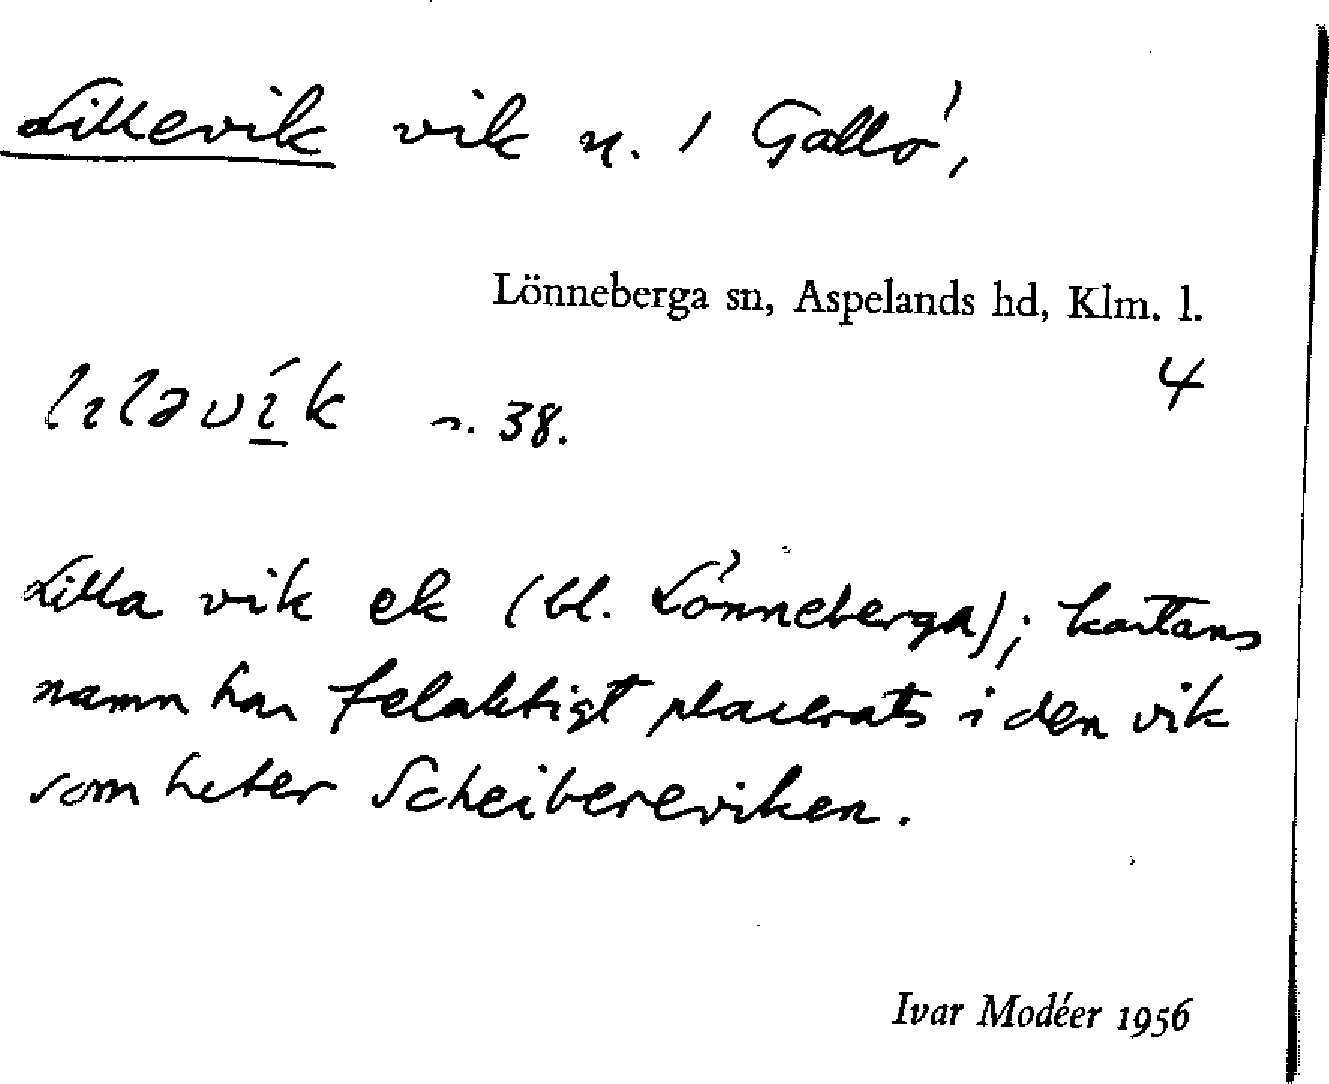 Lillevik vik n. / Gallö,
Lönneberga sn, Aspelands hd, Klm. l.
4
lıləvík n. 38.
Lilla vik ek (bl. Lönneberga); kartans
namn har felaktigt placerats i den vik
som heter Scheibereviken.
Ivar Modéer 1956